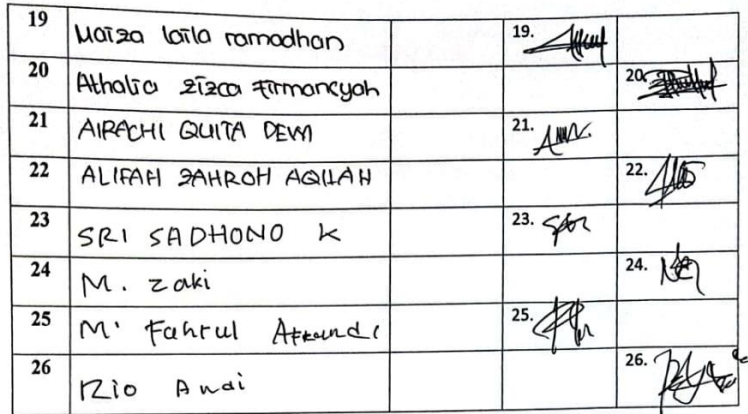 19 Maiza laila ramadhan 19.
20 Athalia zizca Firmansyah 20.
21 AIRACHI QUITA DEWI 21.
22 ALIFAH ZAHROH AQILAH 22.
23 SRI SADHONO K 23.
24 M. zaki 24.
25 M. Fahrul 25.
26 Rio Andi 26.